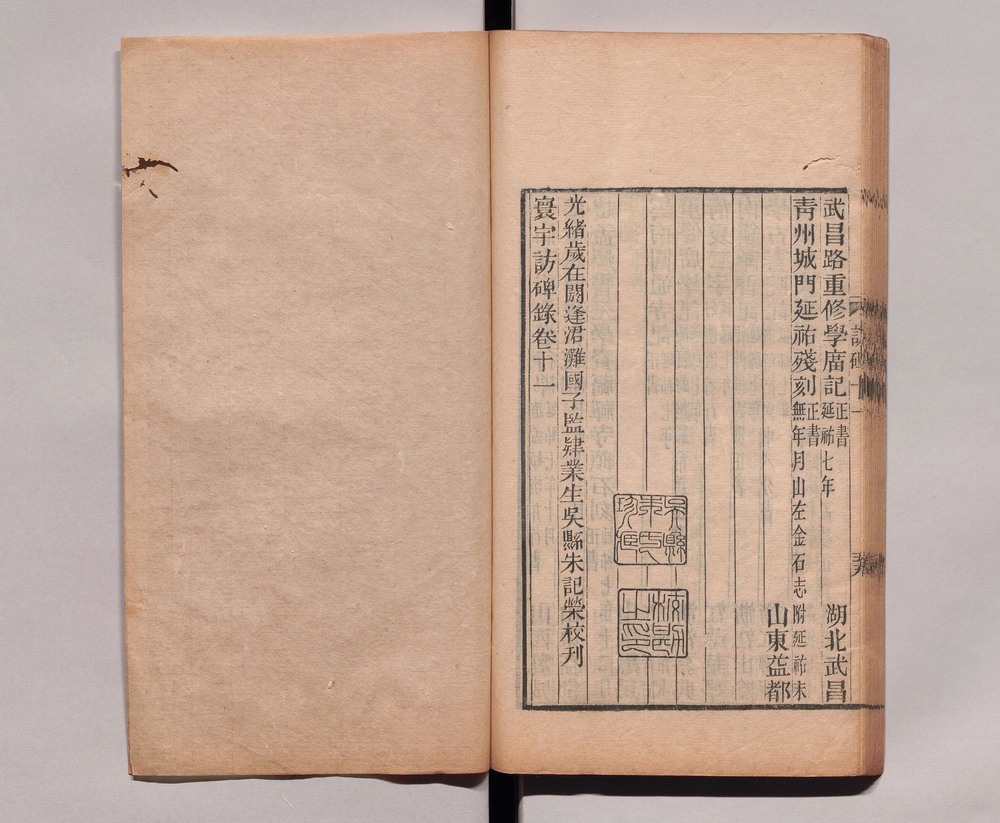 武昌路重修學廟記 正書 延祐七年 湖北武昌
青州城門延祐殘刻 正書 無年月山左金石志附延祐末 山東益都
吳縣朱氏珍臧
校勘之印
光緒歲在閼逢涒灘國子監肄業生吳縣朱記榮校刊
寰宇訪碑錄卷十一
訪碑十一